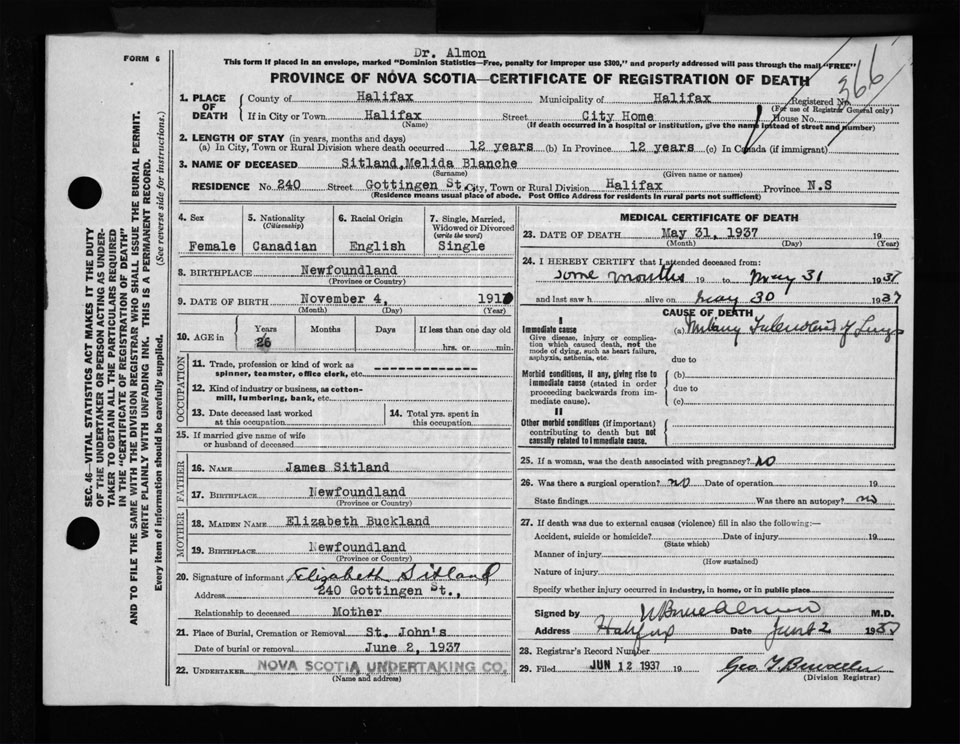 Dr. Almon
FORM 6
This form if placed in an envelope, marked "Dominion Statistics—Free, penalty for improper use $300," and properly addressed will pass through the mail "FREE"
PROVINCE OF NOVA SCOTIA—CERTIFICATE OF REGISTRATION OF DEATH
366
1. PLACE OF DEATH
County of Halifax Municipality of Halifax Registered No.
(For use of Registrar General only)
If in City or Town Halifax Street City Home House No.
(Name) (If death occurred in a hospital or institution, give the name instead of street and number)
2. LENGTH OF STAY (in years, months and days)
(a) In City, Town or Rural Division where death occurred 12 years (b) In Province 12 years (c) In Canada (if immigrant)
3. NAME OF DECEASED Sitland, Melida Blanche
(Surname) (Given name or names)
RESIDENCE No. 240 Street Gottingen St. City, Town or Rural Division Halifax Province N.S
(Residence means usual place of abode. Post Office Address for residents in rural parts not sufficient)
4. Sex
Female
5. Nationality
(Citizenship)
Canadian
6. Racial Origin
English
7. Single, Married,
Widowed or Divorced
(write the word)
Single
8. BIRTHPLACE Newfoundland
(Province or Country)
9. DATE OF BIRTH November 4, 191
(Month) (Day) (Year)
10. AGE in
Years Months Days If less than one day old
26 hrs. or min.
OCCUPATION
11. Trade, profession or kind of work as
spinner, teamster, office clerk, etc. --------------
12. Kind of industry or business, as cotton-
mill, lumbering, bank, etc.
13. Date deceased last worked
at this occupation
14. Total yrs. spent in
this occupation
15. If married give name of wife
or husband of deceased
FATHER
16. NAME James Sitland
17. BIRTHPLACE Newfoundland
(Province or Country)
MOTHER
18. MAIDEN NAME Elizabeth Buckland
19. BIRTHPLACE Newfoundland
(Province or Country)
20. Signature of informant Elizabeth Sitland
Address 240 Gottingen St.,
Relationship to deceased Mother
21. Place of Burial, Cremation or Removal St. John's
Date of burial or removal June 2, 1937
22. UNDERTAKER NOVA SCOTIA UNDERTAKING CO.
(Name and address)
MEDICAL CERTIFICATE OF DEATH
23. DATE OF DEATH May 31, 1937 19
(Month) (Day) (Year)
24. I HEREBY CERTIFY that I attended deceased from:
some months 19 to May 31 1937
and last saw h alive on May 30 1937
CAUSE OF DEATH
I
Immediate cause
Give disease, injury or complica-
tion which caused death, not the
mode of dying, such as heart failure,
asphyxia, asthenia, etc.
(a) of Lungs
due to
Morbid conditions, if any, giving rise to
immediate cause (stated in order
proceeding backwards from im-
mediate cause).
(b)
due to
(c)
II
Other morbid conditions (if important)
contributing to death but not
causally related to immediate cause.
25. If a woman, was the death associated with pregnancy? no
26. Was there a surgical operation? no Date of operation 19
State findings Was there an autopsy? no
27. If death was due to external causes (violence) fill in also the following:—
Accident, suicide or homicide? Date of injury 19
(State which)
Manner of injury
(How sustained)
Nature of injury
Specify whether injury occurred in industry, in home, or in public place
Signed by Almon M.D.
Address Halifax Date June 2 1937
28. Registrar's Record Number
29. Filed JUN 12 1937 19
(Division Registrar)
SEC. 46—VITAL STATISTICS ACT MAKES IT THE DUTY
OF THE UNDERTAKER OR PERSON ACTING AS UNDER-
TAKER TO OBTAIN ALL THE PARTICULARS REQUIRED
IN THE "CERTIFICATE OF REGISTRATION OF DEATH"
AND TO FILE THE SAME WITH THE DIVISION REGISTRAR WHO SHALL ISSUE THE BURIAL PERMIT.
WRITE PLAINLY WITH UNFADING INK. THIS IS A PERMANENT RECORD.
Every item of information should be carefully supplied. (See reverse side for instructions.)